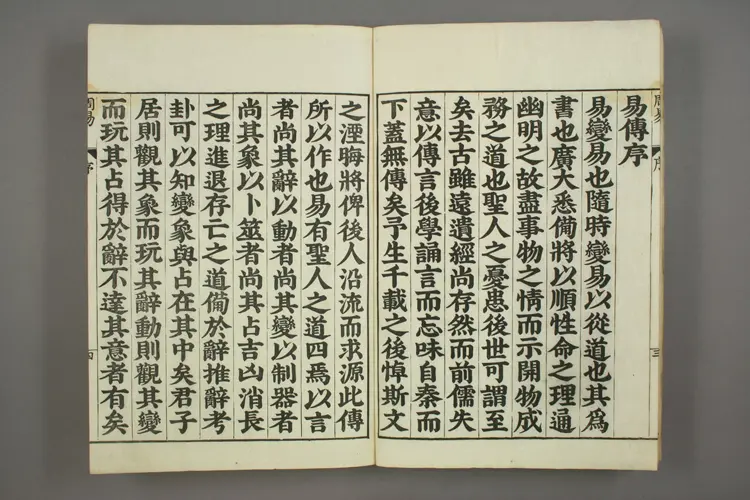 周易
序
三
易傳序
易變易也隨時變易以從道也其爲
書也廣大悉備將以順性命之理通
幽明之故盡事物之情而示開物成
務之道也聖人之憂患後世可謂至
矣去古雖遠遺經尚存然而前儒失
意以傳言後學誦言而忘味自秦而
下蓋無傳矣予生千載之後悼斯文
之湮晦將俾後人沿流而求源此傳
所以作也易有聖人之道四焉以言
者尚其辭以動者尚其變以制器者
尚其象以卜筮者尚其占吉凶消長
之理進退存亡之道備於辭推辭考
卦可以知變象與占在其中矣君子
居則觀其象而玩其辭動則觀其變
而玩其占得於辭不達其意者有矣
周易
序
四